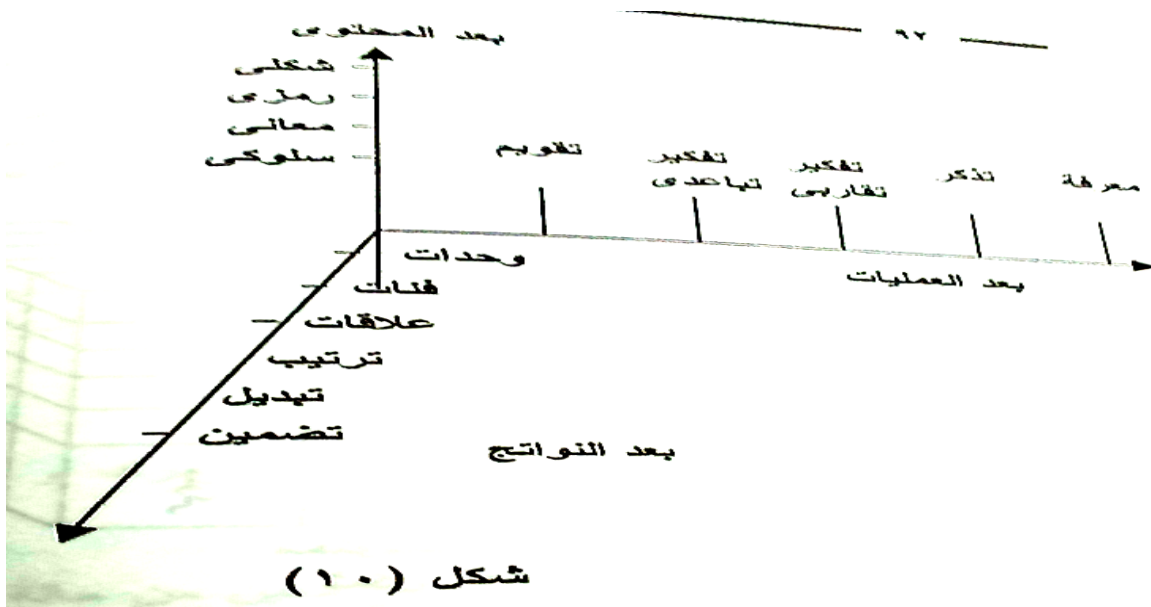 ٩٢
بعد المحتوى
شكلى
رمزى
معانى
سلوكى
معرفة
تذكر
تفكير تقاربى
تفكير تباعدى
تقويم
بعد العمليات
وحدات
فئات
علاقات
ترتيب
تبديل
تضمين
بعد النواتج
شكل (١٠)